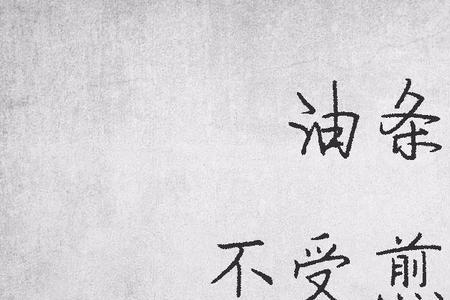 油条
不受煎